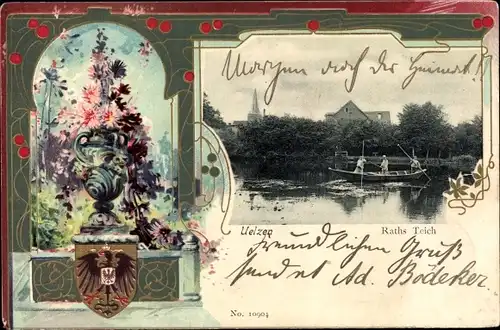 Morgen nach der Heimat!
Uelzen
Raths Teich
Freundlichen Gruß
sendet Ad. Bödeker.
No. 10904